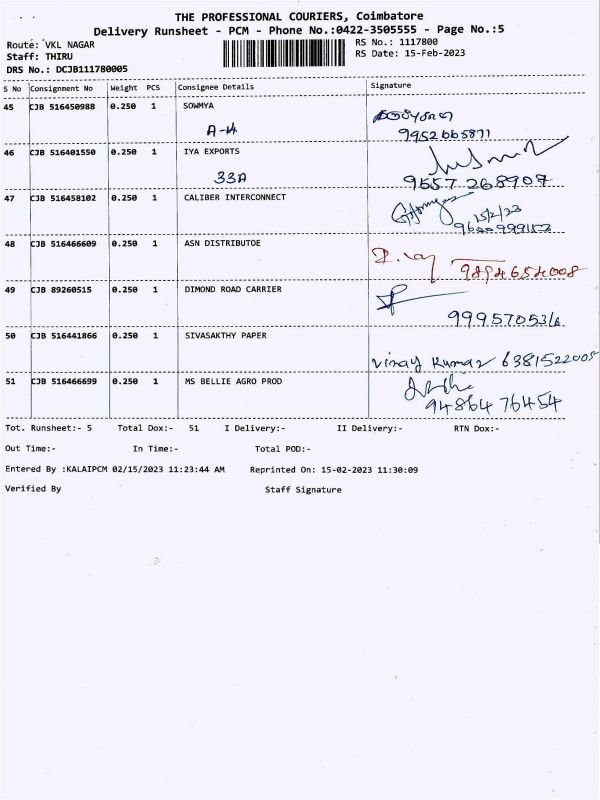 THE PROFESSIONAL COURIERS, Coimbatore
Delivery Runsheet - PCM - Phone No.:0422-3505555 - Page No.:5
Route: VKL NAGAR RS No.: 1117800
Staff: THIRU RS Date: 15-Feb-2023
DRS No.: DCJB111780005
S No Consignment No Weight PCS Consignee Details Signature
45 CJB 516450988 0.250 1 SOWMYA
A-4 9952665871
46 CJB 516401550 0.250 1 IYA EXPORTS
33A 9557 268907
47 CJB 516458102 0.250 1 CALIBER INTERCONNECT
15/2/23
48 CJB 516466609 0.250 1 ASN DISTRIBUTOE
9894654008
49 CJB 89260515 0.250 1 DIMOND ROAD CARRIER
50 CJB 516441866 0.250 1 SIVASAKTHY PAPER
Vinay Kumar 6381522005
51 CJB 516466699 0.250 1 MS BELLIE AGRO PROD
9486476454
Tot. Runsheet:- 5 Total Dox:- 51 I Delivery:- II Delivery:- RTN Dox:-
Out Time:- In Time:- Total POD:-
Entered By :KALAIPCM 02/15/2023 11:23:44 AM Reprinted On: 15-02-2023 11:30:09
Verified By Staff Signature